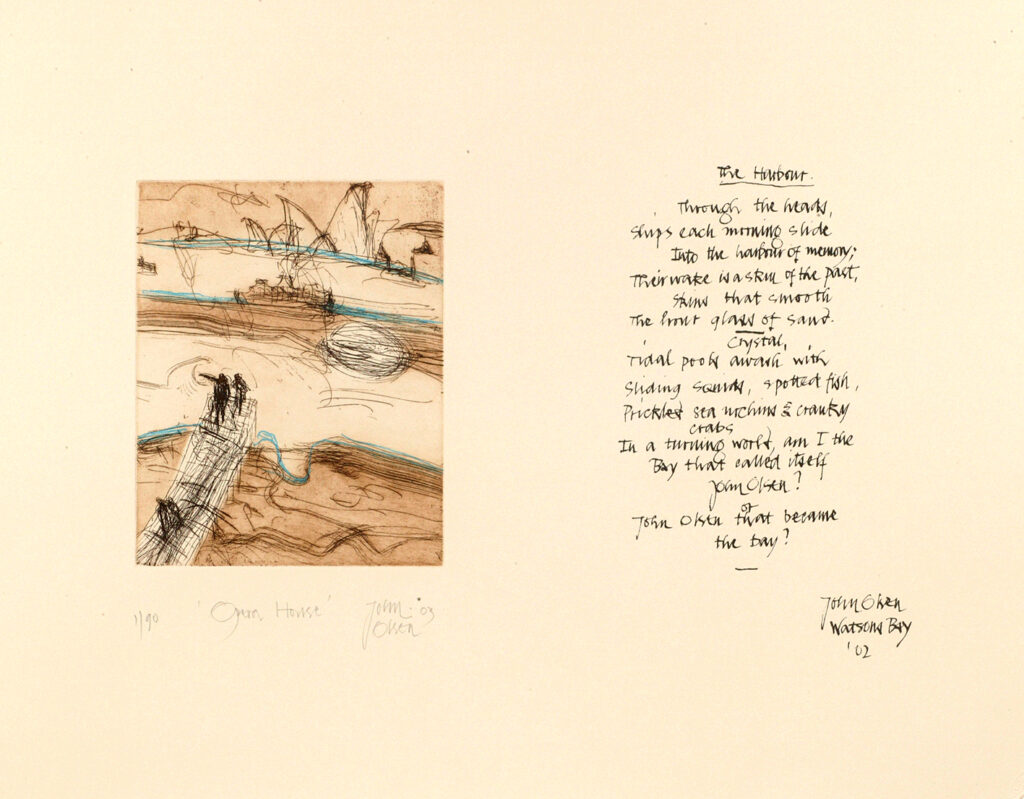 The Harbour.
Through the heads,
Ships each morning slide
Into the harbour of memory;
Their wake is a skin of the past,
Skins that smooth
The hour glass of sand.
Crystal,
Tidal pools awash with
Sliding squids, spotted fish,
Prickled sea urchins & cranky
crabs
In a turning world, am I the
Bay that called itself
John Olsen?
or
John Olsen that became
the bay?
1/90 'Opera House' John Olsen '03
John Olsen
Watsons Bay
'02